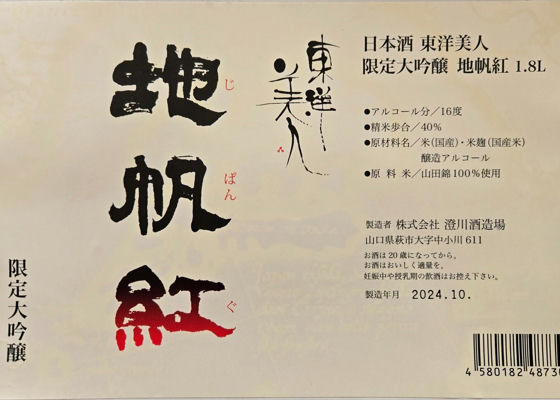 日本酒 東洋美人
限定大吟醸 地帆紅 1.8L
●アルコール分／16度
●精米歩合／40%
●原材料名／米(国産)・米麹(国産米)
醸造アルコール
●原 料 米／山田錦100%使用
製造者 株式会社 澄川酒造場
山口県萩市大字中小川 611
お酒は20歳になってから。
お酒はおいしく適量を。
妊娠中や授乳期の飲酒はお控え下さい。
製造年月 2024.10.
東洋美人
地帆紅
じ
ぱん
ぐ
限定大吟醸